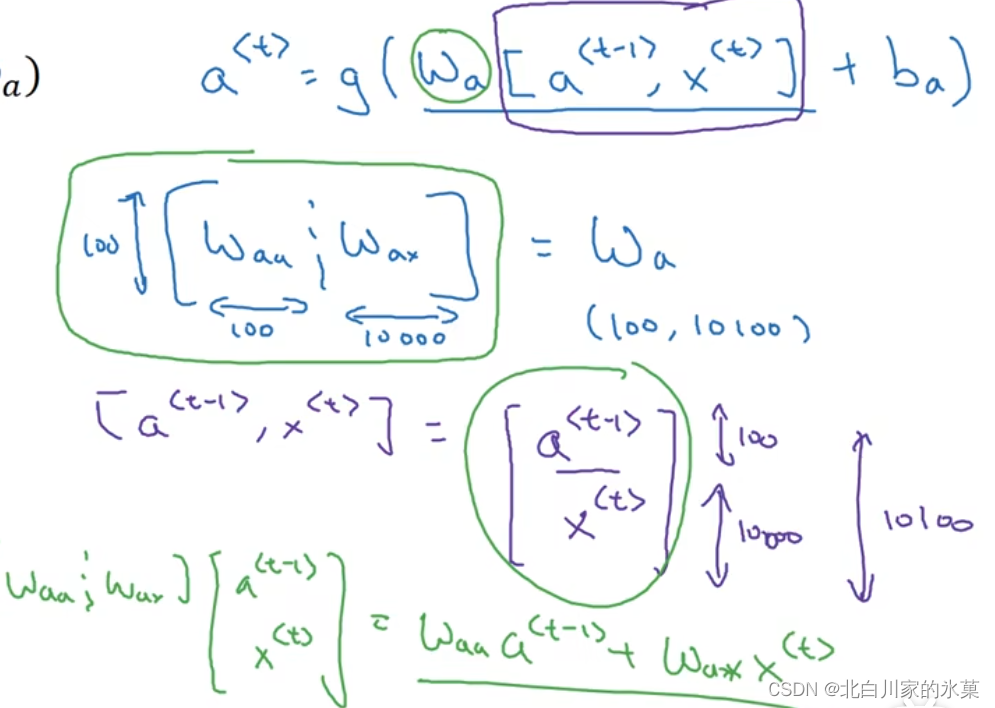 a)
a^{<t>} = g(W_a [a^{<t-1>}, x^{<t>}] + b_a)
100 [W_{aa} ; W_{ax}] = W_a
100 10000 (100, 10100)
[a^{<t-1>}, x^{<t>}] = [a^{<t-1>} 100
x^{<t>}] 10000 10100
W_{aa} ; W_{ax}] [a^{<t-1>}
x^{<t>}] = W_{aa} a^{<t-1>} + W_{ax} x^{<t>}
CSDN @北白川家的氷菓